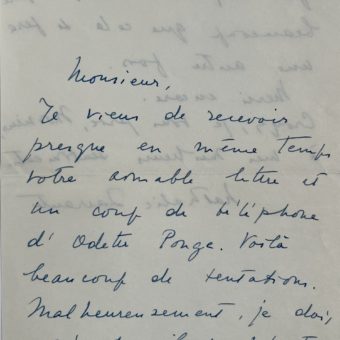 Monsieur,
Je viens de recevoir
presque en même temps
votre aimable lettre et
un coup de téléphone
d'Odette Ponge. Voilà
beaucoup de tentations.
Malheureusement, je dois,